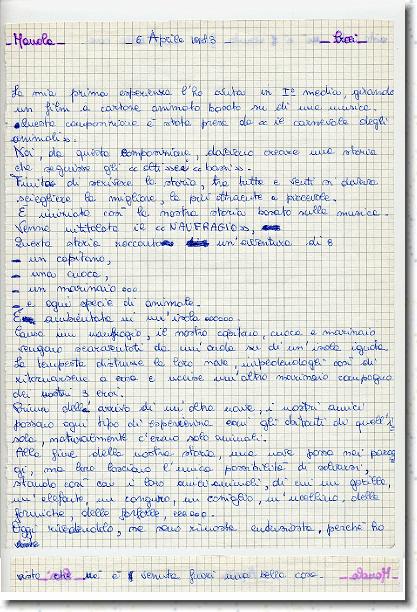 Manola 6 Aprile 1983 Broi
La mia prima esperienza l'ho avuta in Iª media, girando
un film a cartone animato basato su di una musica.
Questa composizione è stata presa da «il carnevale degli
animali».
Noi, da questa composizione, dovevamo creare una storia
che seguisse gli «alti e i bassi».
Finita di scrivere la storia, tra tutte e venti si doveva
scegliere la migliore, la più attraente e piacevole.
È iniziata così la nostra storia basata sulla musica.
Venne intitolata il «NAUFRAGIO»,
Questa storia racconta un'avventura di:
- un capitano,
- una cuoca,
- un marinaio ...
- e ogni specie di animale.
È ambientata in un'isola ......
Causa un naufragio, il nostro capitano, cuoca e marinaio
vengono scaraventati da un'onda su di un'isola ignota.
La tempesta distrusse la loro nave, impedendogli così di
ritornarsene a casa e uccise un altro marinaio compagno
dei nostri 3 eroi.
Prima dell'arrivo di un'altra nave, i nostri amici
passano ogni tipo di esperienza con gli abitanti di quell'i
sola, naturalmente c'erano solo animali.
Alla fine della nostra storia, una nave passa nei parag
gi, ma loro lasciano l'unica possibilità di salvarsi,
stando così con i loro amici animali, di cui un gorilla,
un'elefante, un canguro, un coniglio, un'uccellino, delle
formiche, delle farfalle, ......
Oggi rivedendolo, ne sono rimasta entusiasta, perché ho
visto che ne è venuta fuori una bella cosa.